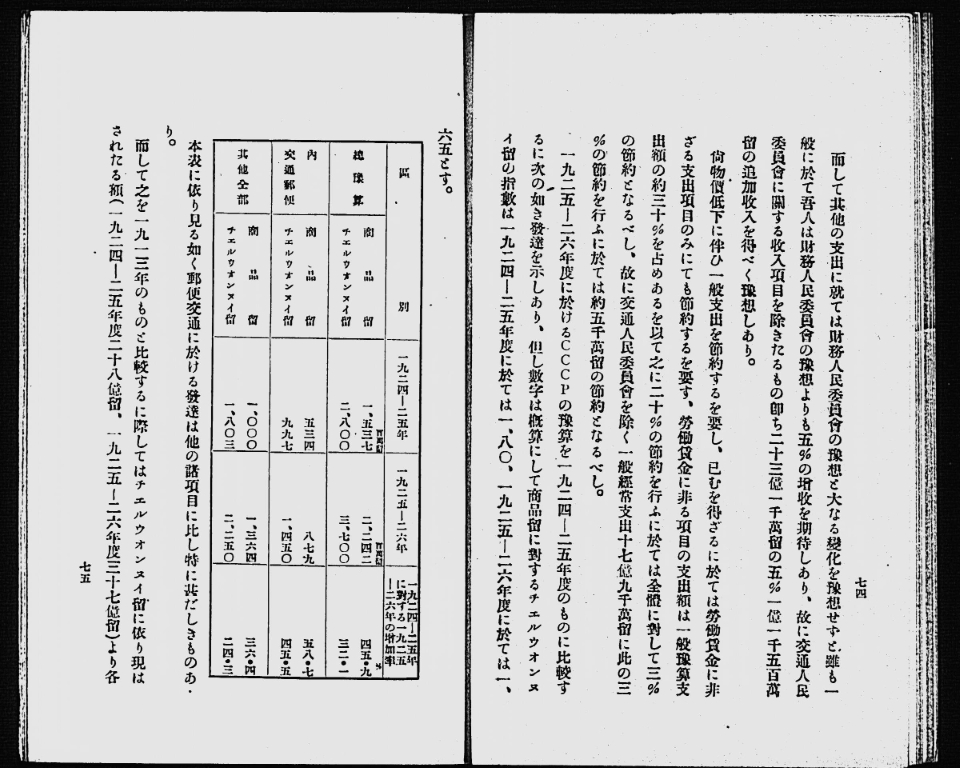 而して其他の支出に就ては財務人民委員會の豫想と大なる變化を豫想せずと雖も一
般に於て吾人は財務人民委員會の豫想よりも五％の增收を期待しあり、故に交通人民
委員會に關する收入項目を除きたるもの卽ち二十三億一千萬留の五％一億一千五百萬
留の追加收入を得べく豫想しあり。
尙物價低下に伴ひ一般支出を節約するを要し、已むを得ざるに於ては勞働賃金に非
ざる支出項目のみにても節約するを要す、勞働賃金に非る項目の支出額は一般豫算支
出額の約三十％を占めあるを以て之に二十％の節約を行ふに於ては全體に對して三％
の節約となるべし、故に交通人民委員會を除く一般經常支出十七億九千萬留に此の三
％の節約を行ふに於ては約五千萬留の節約となるべし。
一九二五—二六年度に於けるCCCPの豫算を一九二四—二五年度のものに比較す
るに次の如き發達を示しあり、但し數字は槪算にして商品留に對するチエルウオンヌ
イ留の指數は一九二四—二五年度に於ては一、八〇、一九二五—二六年度に於ては一、
七四
六五とす。
區別
一九二四—二五年
一九二五—二六年
一九二四—二五年
に對する一九二五
—二六年の增加率
總豫算
商品留
一、五三七
百萬留
二、二四二
百萬留
四五・九
％
チエルウオンヌイ留
二、八〇〇
三、七〇〇
三二・一
內
交通郵便
商品留
五三四
八七九
五八・七
チエルウオンヌイ留
九九七
一、四五〇
四五・五
其他全部
商品留
一、〇〇〇
一、三六四
三六・四
チエルウオンヌイ留
一、八〇三
二、二五〇
二四・三
本表に依り見る如く郵便交通に於ける發達は他の諸項目に比し特に甚だしきものあ
り。
而して之を一九一三年のものと比較するに際してはチエルウオンヌイ留に依り現は
されたる額(一九二四—二五年度二十八億留、一九二五—二六年度三十七億留)より各
七五